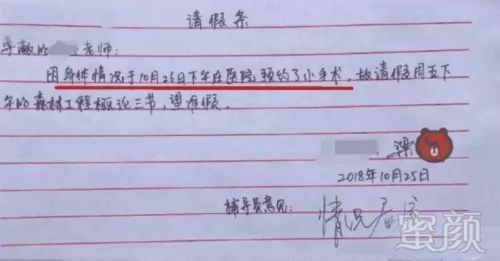 请假条
尊敬的 老师:
因身体情况于10月26日下午在医院预约了小手术,故请假周五下
午的森林工程概论三节,望准假。
梁
2018年10月25日
辅导员意见:
情况属实
蜜颜